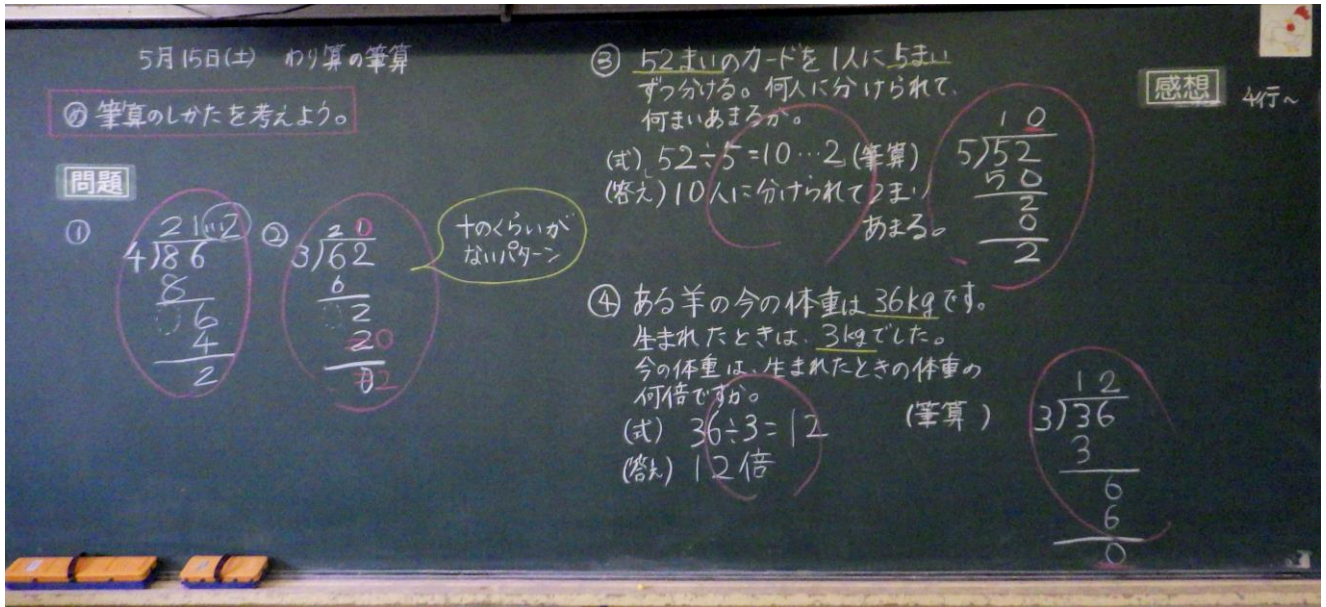 5月15日(土) わり算の筆算
め 筆算のしかたを考えよう。
問題
①
21…2
4)86
8
6
4
2
②
210
3)62
6
2
20
02
十のくらいが
ないパターン
③ 52まいのカードを1人に5まい
ずつ分ける。何人に分けられて、
何まいあまるか。
(式) 52÷5=10…2 (筆算)
(答え) 10人に分けられて2まい
あまる。
10
5)52
50
2
0
2
④ ある羊の今の体重は36kgです。
生まれたときは、3kgでした。
今の体重は、生まれたときの体重の
何倍ですか。
(式) 36÷3=12
(答え) 12倍
(筆算)
12
3)36
3
6
6
0
感想 4行~